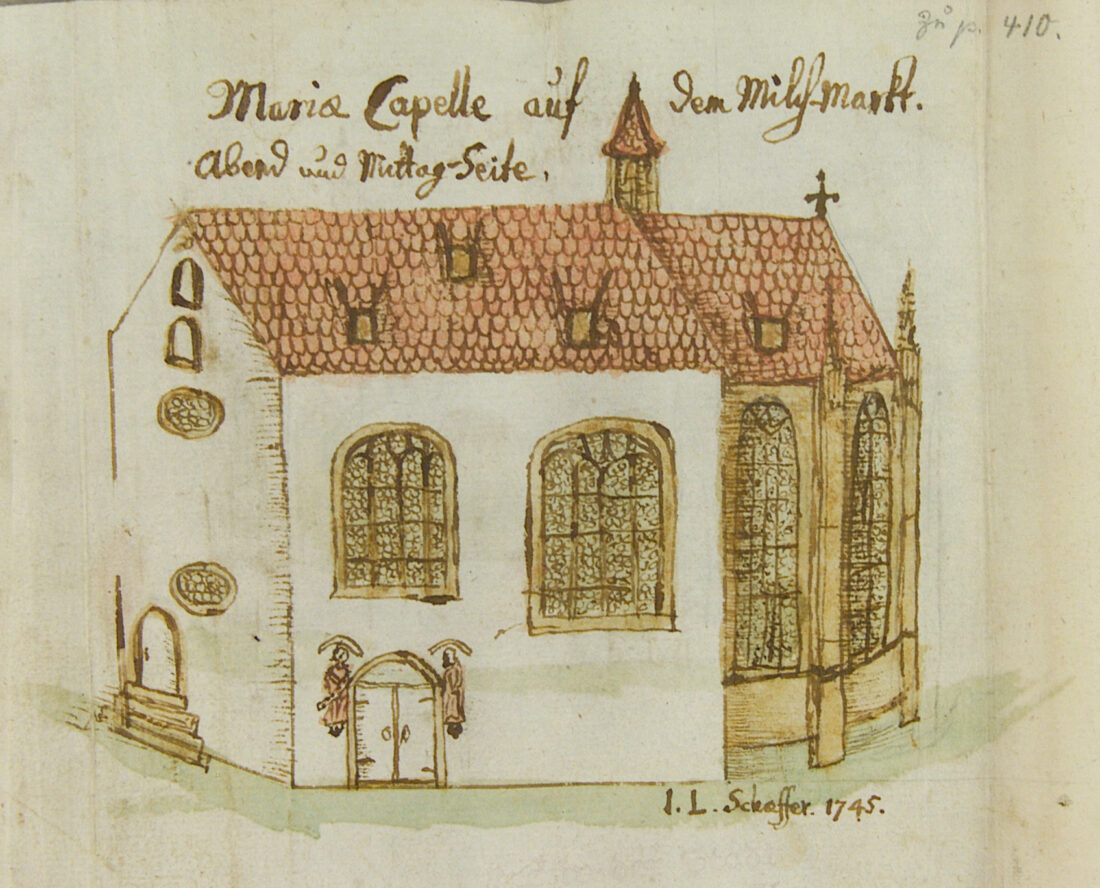 Zu p. 410.
Mariæ Capelle auf dem Milch-Markt.
Abend und Mittag-Seite.
I. L. Schæffer. 1745.